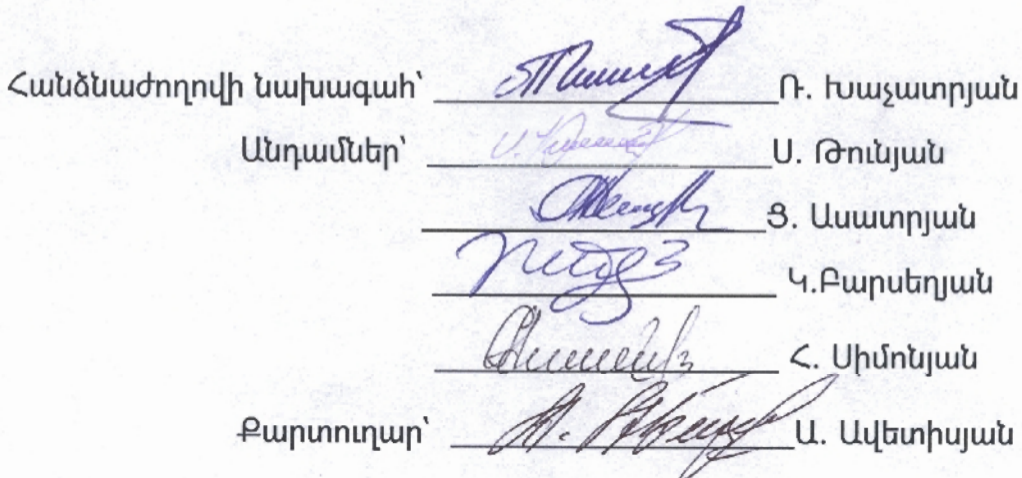 Հանձնաժողովի նախագահ՝ Ռ. Խաչատրյան
Անդամներ՝ Ս. Թունյան
Ց. Ասատրյան
Կ.Բարսեղյան
Հ. Սիմոնյան
Քարտուղար՝ Ա. Ավետիսյան